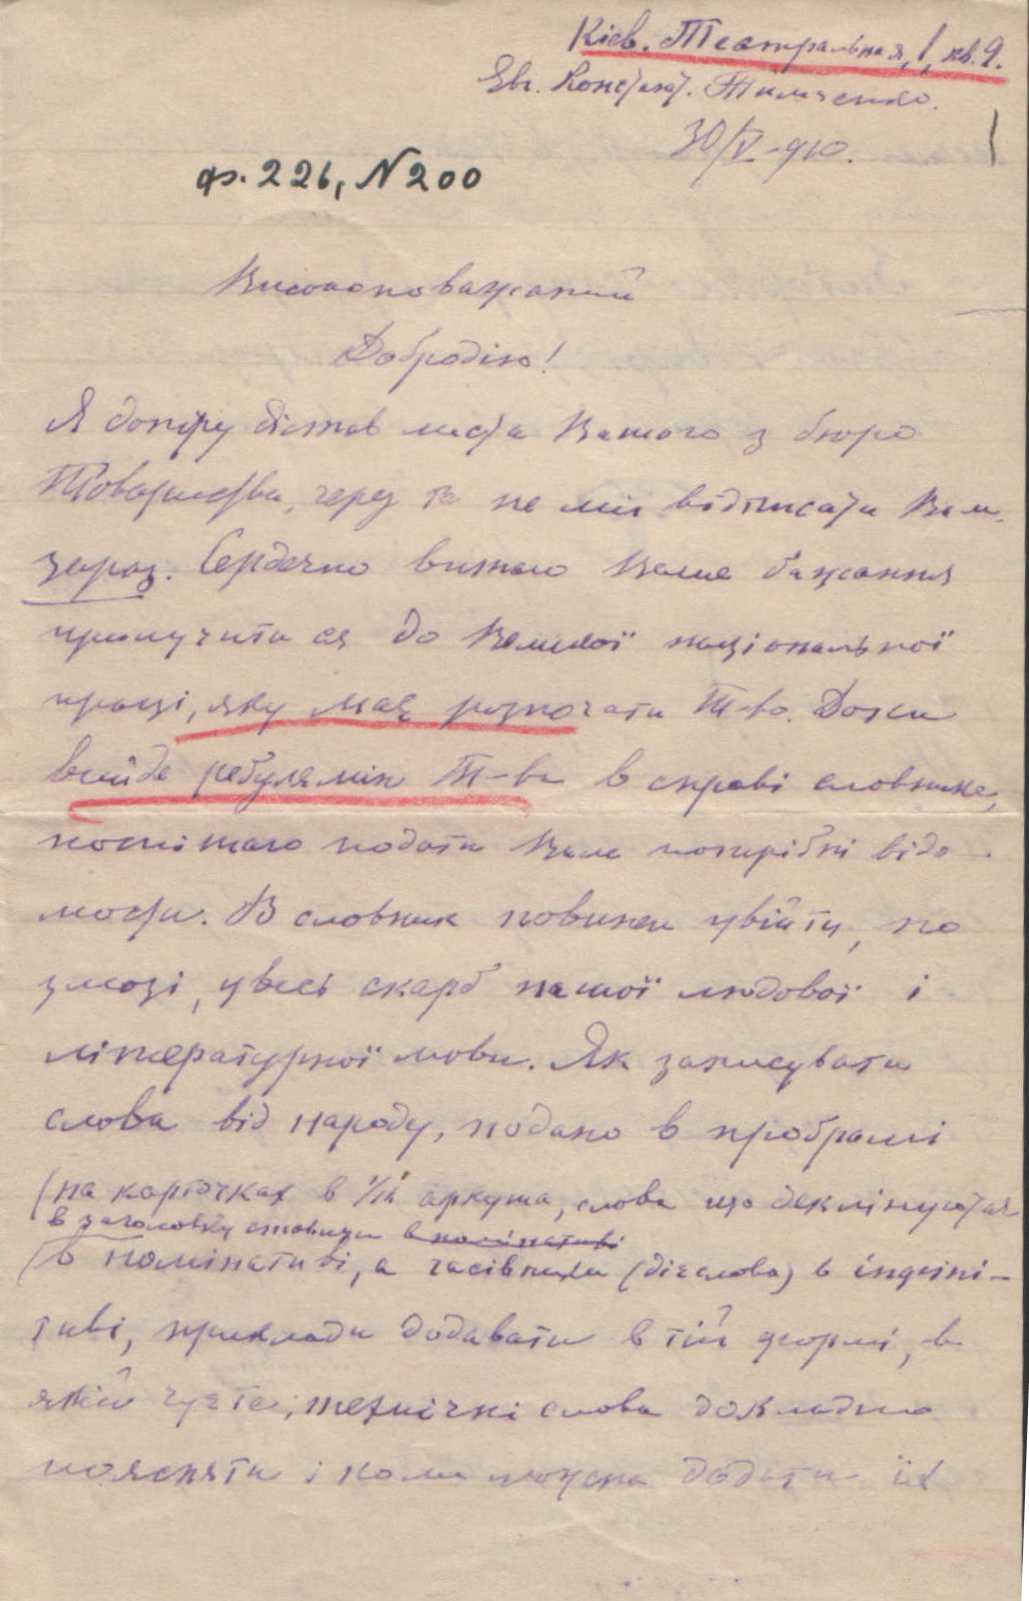 Кіев. Театральная, 1, кв. 9.
Евг. Констант. Тимченко.
30/V-910.
1
ф. 226, N 200
Високоповажаний
Добродію!
Я допіру дістав листа Вашого з бюро
Товариства, через те не міг відписати Вам
зараз. Сердечно витаю Ваше бажання
прилучити ся до Великої національної
праці, яку має розпочати Т-во. Доки
вийде регулямін Т-ва в справі словника,
поспішаю подати Вам потрібні відо-
мости. В словник повинен увійти, по
змозі, увесь скарб нашої людової і
літературної мови. Як записувати
слова від народу, подано в програмі
(на карточках в 1/16 аркуша, слова що деклінуються
в заголовку ставити в номінативі
(в номінативі, а часівники (дієслова) в інфіні-
тиві, приклади додавати в тій формі, в
якій чуєте, технічні слова докладно
пояснити і коли можна додати їх